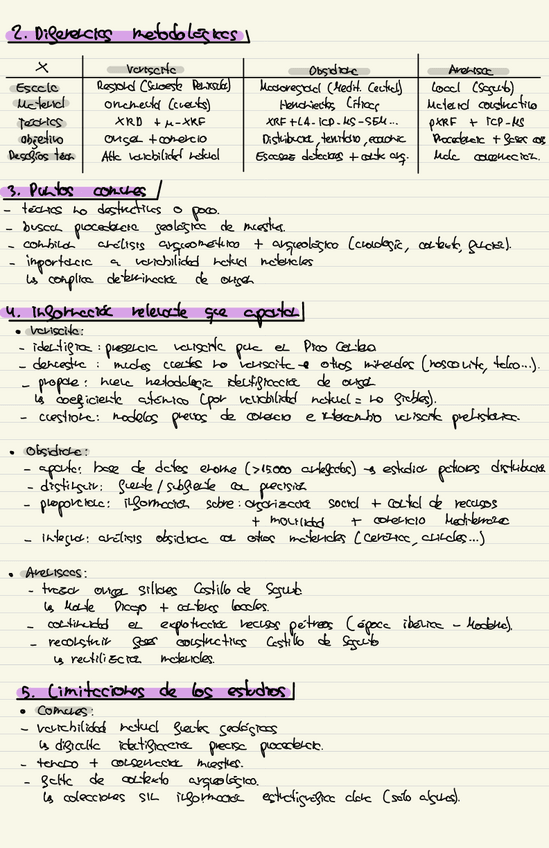 2. Diferencias metodológicas
X Variscita Obsidiana Arenisca
Escala Regional (Suroeste Península) Macroregional (Medit. Central) Local (Sagunto)
Material ornamental (cuentas) Herramientas líticas Material constructivo
Técnicas XRD + μ-XRF XRF + LA-ICP-MS-SEM... pXRF + ICP-MS
Objetivo origen + comercio Distribución, territorio, economía Procedencia + fases cos
Desafíos téc. Alta variabilidad natural Escasez detectores + contexto arq. Mala conservación.
3. Puntos comunes
- técnicas no destructivas o poco.
- buscan procedencia geológica de muestras.
- combinan análisis arqueométrico + arqueológico (cronología, contexto, función).
- importancia a variabilidad natural materiales
↳ complica determinación de origen
4. Información relevante que aporta
• Variscita:
- identifica: presencia variscita pura en Pico Centeno
- demuestra: muchas cuentas no variscita → otros minerales (moscovita, talco...).
- propone: nueva metodología identificación de origen
↳ coeficiente atómico (por variabilidad natural = no fiables).
- cuestiona: modelos previos de comercio e intercambio variscita prehistórica.
• Obsidiana:
- aporta: base de datos enorme (>15000 artefactos) → estudiar patrones distribución
- distinguir: fuente/subfuente con precisión
- proporciona: información sobre: organización social + control de recursos
+ movilidad + comercio Mediterráneo
- integra: análisis obsidiana con otros materiales (cerámica, animales...)
• Areniscas:
- trazar origen sillares Castillo de Sagunto
↳ Monte Picayo + canteras locales.
- continuidad en explotación recursos pétreos (época ibérica - Moderna).
- reconstruir fases constructivas Castillo de Sagunto
↳ reutilización materiales.
5. Limitaciones de los estudios
• Comunes:
- variabilidad natural fuentes geológicas
↳ dificulta identificación precisa procedencia.
- tamaño + conservación muestras.
- falta de contexto arqueológico.
↳ colecciones sin información estratigráfica clara (solo algunas).